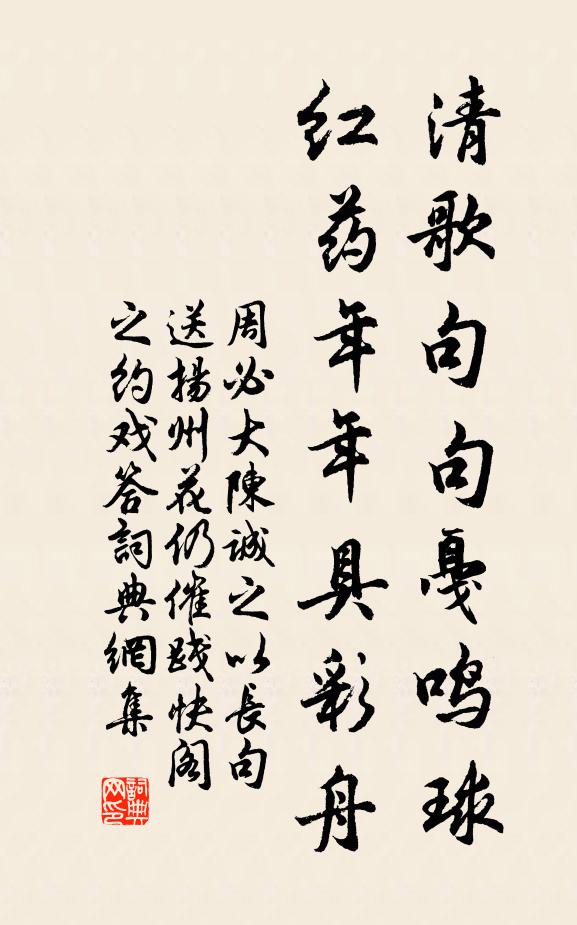 清歌句句戛鸣球
红药年年具彩舟
周必大陳誠之以長句
送揚州花仍催踐快阁
之约戏答詞典網集
詞典网印